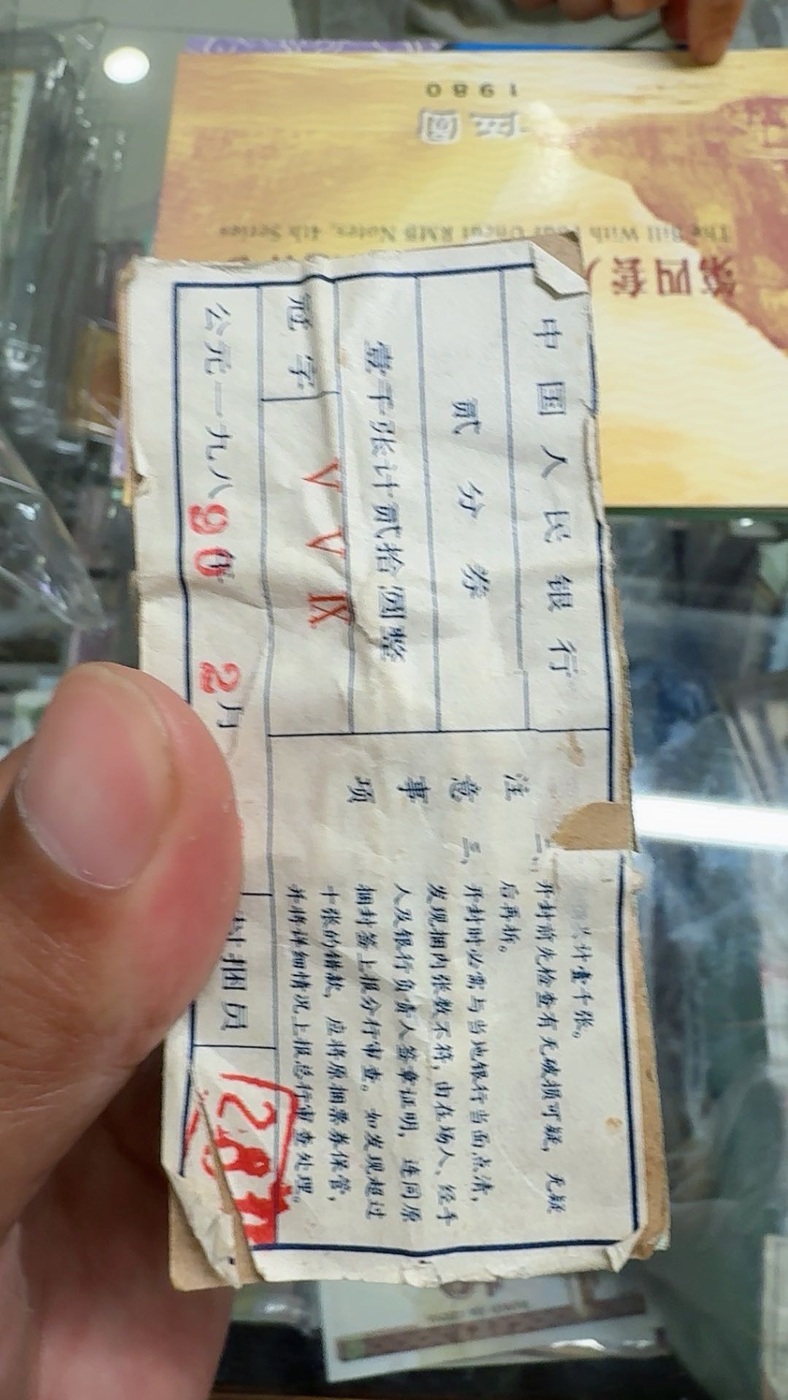 中国人民银行
贰分券
壹千张计贰拾圆整
冠字 V V IX
公元一九八90年 2月
封捆员
注意事项
共计壹千张。
二、开封前先检查有无破损可疑，无疑
后再拆。
三、开封时必需与当地银行当面点清，
发现捆内张数不符，由在场人、经手
人及银行负责人签章证明，连同原
捆封签上报分行审查。如发现超过
十张的错款，应将原捆票券保管，
并将详细情况上报总行审查处理。
1980
The Bill With Four Uncut RMB Notes, 4th Series
第四套人